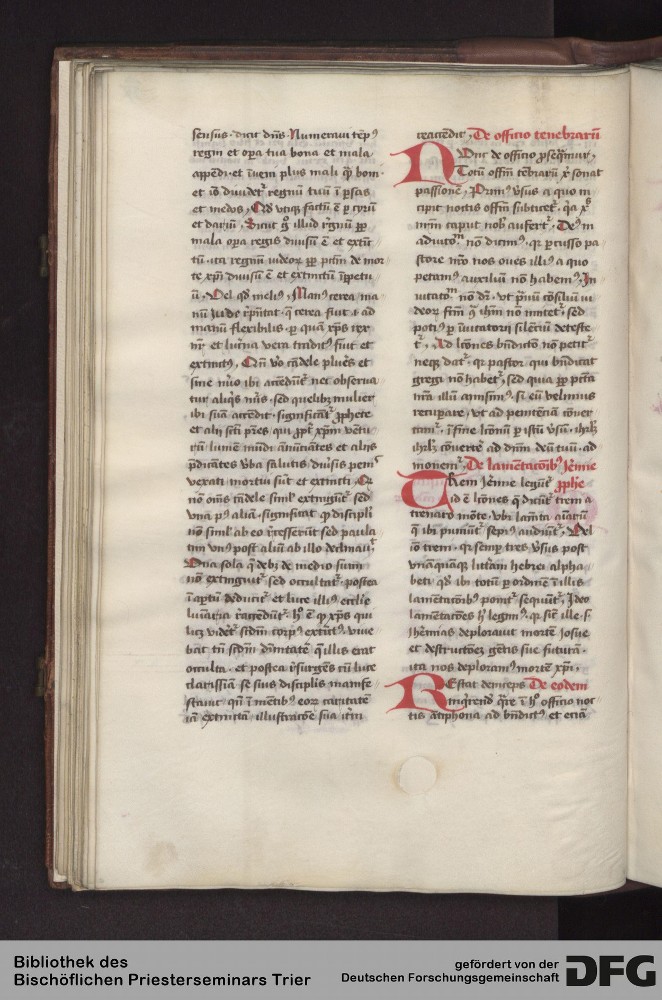 sensus · dicit dns · Numeravi temp9
regni et opa tua bona et mala
appendi · et inveni plus mali qm boni ·
et io dividet regnum tuu i psas
et medos ·
et darium · Sicut illud regnum pp
mala opa regis divisu e et extic
tu · ita regnu iudeor pp pctm de mor
te xpi divisu e et extinctu
u · Vel qd meli9 · Man9 cerea ma
nu Jude cerea fuit · ad
manu flexibilis · p qua xps rex
nr et lucna vera traditus fuit et
extinct9 · candele plures et
sine nuo ibi accedut nec observa
tur aliqs nus · sed quelibz mulier
ibi sua accedit · significat prophete
et alii sci pres qui xpm ventu
ru lumen mundi anunciantes et aliis
pdicates vba salutis divsis penis
vexati mortui sut et extincti ·
no oms candele siml extinguut sed
vna p9 alia · significat q discipli
no siml ab eo recesserut sed paula
tim vn9 post aliu ab illo declinavit
Vna sola q debz de medio sum
no extinguit sed occultat · postea
i aptu deducit et luce illi9 ecclie
luminaria accendut · h e q xps qui
licz videt scdm corp9 extict9 · vive
bat tn scdm divinitate q illis erat
occulta · et postea resurgens cu luce
clarissia se suis disciplis manife
stavit qui i mentib9 eor caritate
ia extincta · illustracoe sua iteru
reaccendit · De officio tenebraru
Nunc de officio pseqmur ·
Totu offm tebraru x sonat
passione · Primu vsus a quo in
cipit noctis offm subticet · qa xps
nrm caput nob aufert · Deus in
adiutom no dicim9 · qr pcusso pa
store nro nos oves illi9 a quo
petam9 auxiliu no habem9 · In
vitatom no dr · vt pravu cosiliu iu
deor ihm no imitet · sed
poti9 p invitatorii silenciu deteste
t · Ad lcones bndicto no petit
neqz dat · qr pastor qui bndicat
gregi no habet · sed quia pp pcta
nra illu amisim9 · si eu velimus
recuperare · vt ad penitentia conver
tam · i fine lconu p istu vsum · ihrlz
ihrlz convertere ad dnm deu tuu · ad
monem · De lamentacoib9 Jeremie
Trem Jeremie legut pphe
id e lcones q dicut trem a
trenaro monte · vbi lamenta aiaru
q ibi puniut sepi9 audiut · Vel
io trem · qr semp tres vsus post
vnaquaqz littera hebrei alpha
beti · qd ibi totu p ordine i illis
lamentacoib9 ponit sequut · Ideo
lamentacoes h legim9 · qr sicut ille · s ·
Jheremias deploravit morte Josue
et destructoez gentis sue futura ·
ita nos deploram9 morte xpi ·
Restat deinceps De eodem
inqrend9 qre i h officio noc
tis antiphona ad bndict9 et ecia
Bibliothek des
Bischöflichen Priesterseminars Trier
gefördert von der
Deutschen Forschungsgemeinschaft
DFG